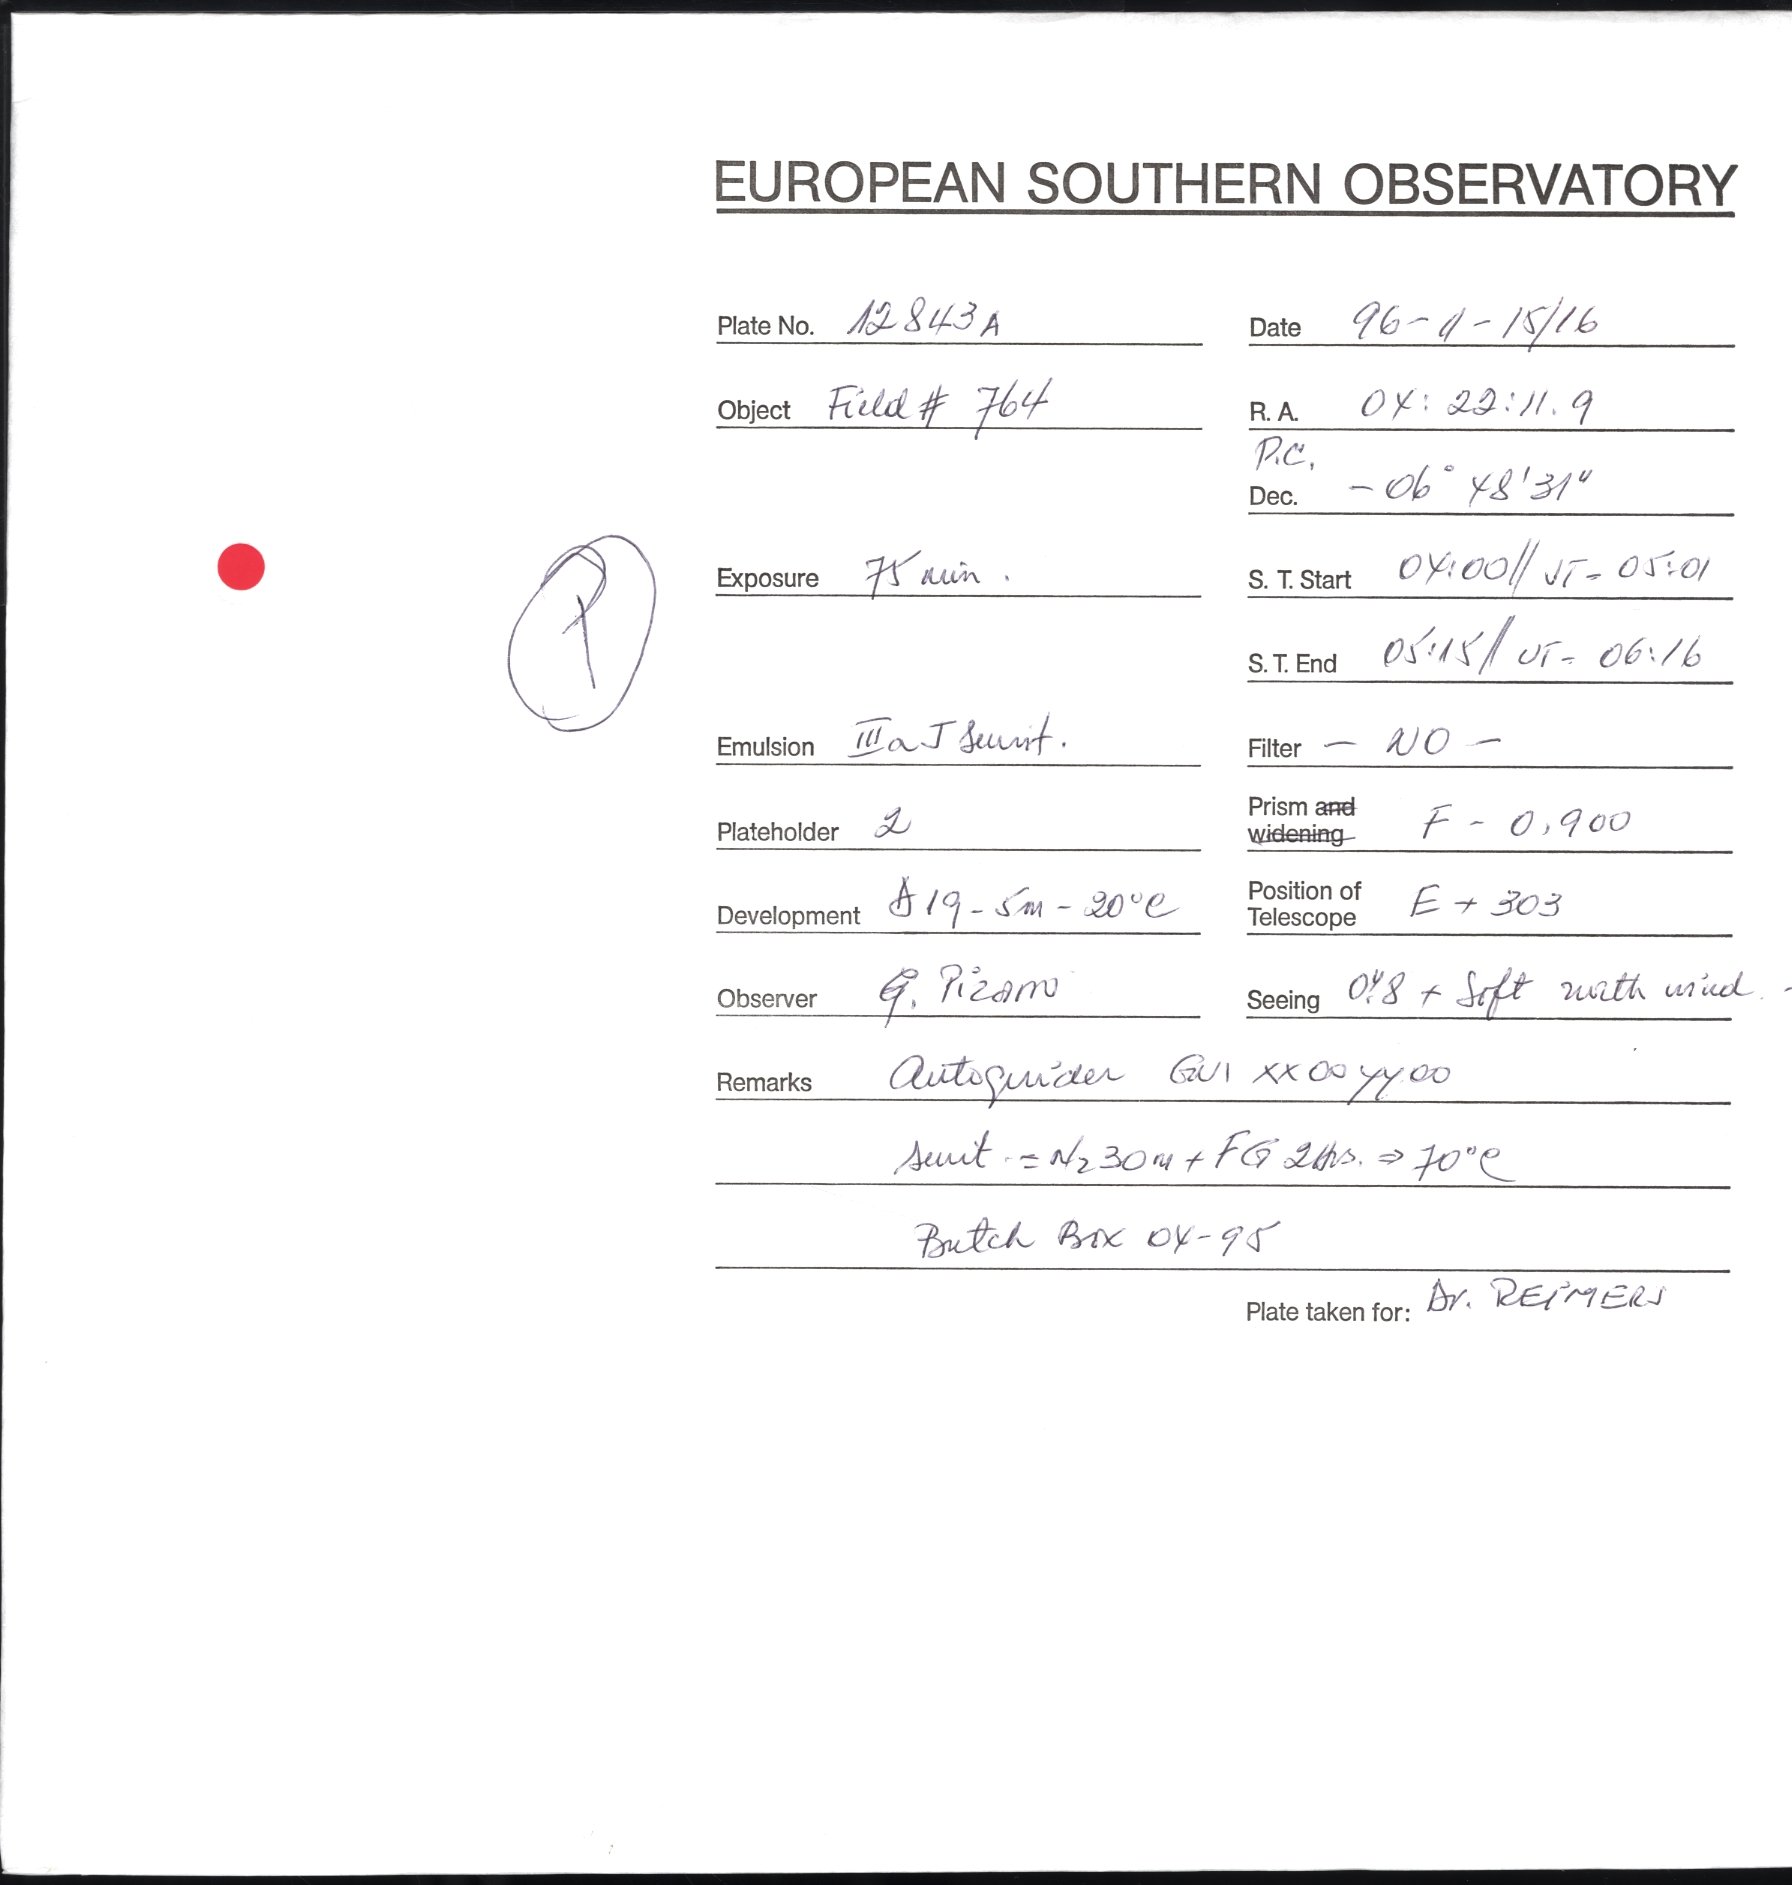 EUROPEAN SOUTHERN OBSERVATORY
Plate No. 12843A
Date 96-11-15/16
Object Field # 764
R. A. 04:22:11.9
P.C.
Dec. -06° 48'31"
Exposure 75 min.
S. T. Start 04:00// UT- 05:01
S. T. End 05:15// UT- 06:16
Emulsion IIIaJ
Filter - NO -
Plateholder 2
Prism and widening F - 0,900
Development D19-5m-20°C
Position of Telescope E + 303
Observer G. Pizarro
Seeing 0".8 + Soft north wind. -
Remarks Autoguider GUI XX00YY00
= N2 30m + FG 2hrs. ⇒ 70°C
Box 04-95
Plate taken for: Dr. REIMERS